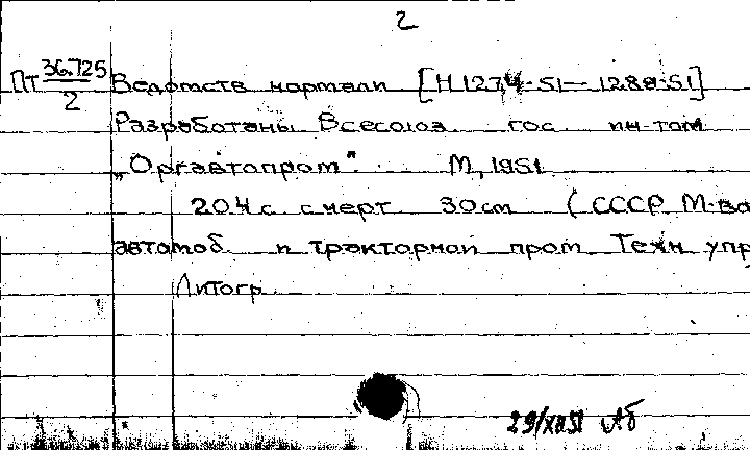 2
Пт 36.725/2 Ведомств нормали [Н 1274-51 — 1288-51]
Разработаны Всесоюз. гос. ин-том
„Оргавтопром". М, 1951
204 с. с черт 30 см (СССР М-во
автомоб и тракторной пром Техн упр
Литогр
29/XII 51